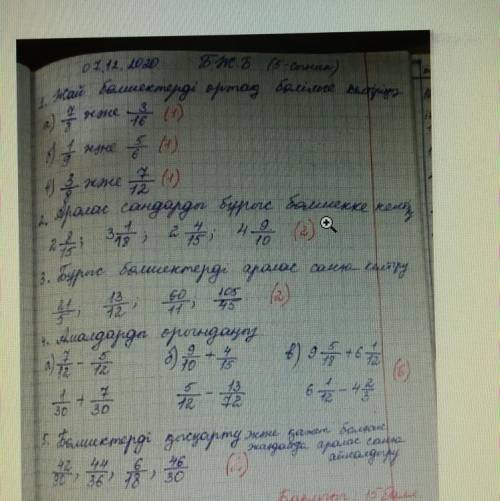 07.12.2020 БЖБ (5-сынып)
1. Жай бөлшектерді ортақ бөлімге келтіру
а) 7/8 және 3/16 (1)
б) 1/9 және 5/6 (1)
в) және 7/12 (1)
2. Аралас сандарды бұрыс бөлшекке келтір
2 2/15; 3 1/18; 2 4/15; 4 9/10 (2)
3. Бұрыс бөлшектерді аралас санға келтіру
21/5, 13/12; 60/11, 105/45 (2)
4. Амалдарды орындаңыз
а) 7/12 - 5/12 б) 9/10 + 4/15 в) 9 5/18 + 6 1/12
1/30 + 7/30 5/12 - 13/72 6 1/12 - 4 2/3 (6)
5. Бөлшектерді қысқарту және қажет болған
жағдайда аралас санға
айналдыру
42/30, 44/36, 6/18, 46/30
Барлығы: 15 балл